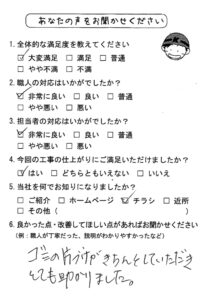 あなたの声をお聞かせください
1. 全体的な満足度を教えてください
☑ 大変満足 □ 満足 □ 普通
□ やや不満 □ 不満
2. 職人の対応はいかがでしたか？
☑ 非常に良い □ 良い □ 普通
□ やや悪い □ 悪い
3. 担当者の対応はいかがでしたか？
☑ 非常に良い □ 良い □ 普通
□ やや悪い □ 悪い
4. 今回の工事の仕上がりにご満足いただけましたか？
☑ はい □ どちらともいえない □ いいえ
5. 当社を何でお知りになりましたか？
□ ご紹介 □ ホームページ ☑ チラシ □ 近所
□ その他（ ）
6. 良かった点・改善してほしい点があればお聞かせください
（例：職人が丁寧だった、説明がわかりやすかったなど）
ゴミの片づけがきちんとしていただき
とても助かりました。